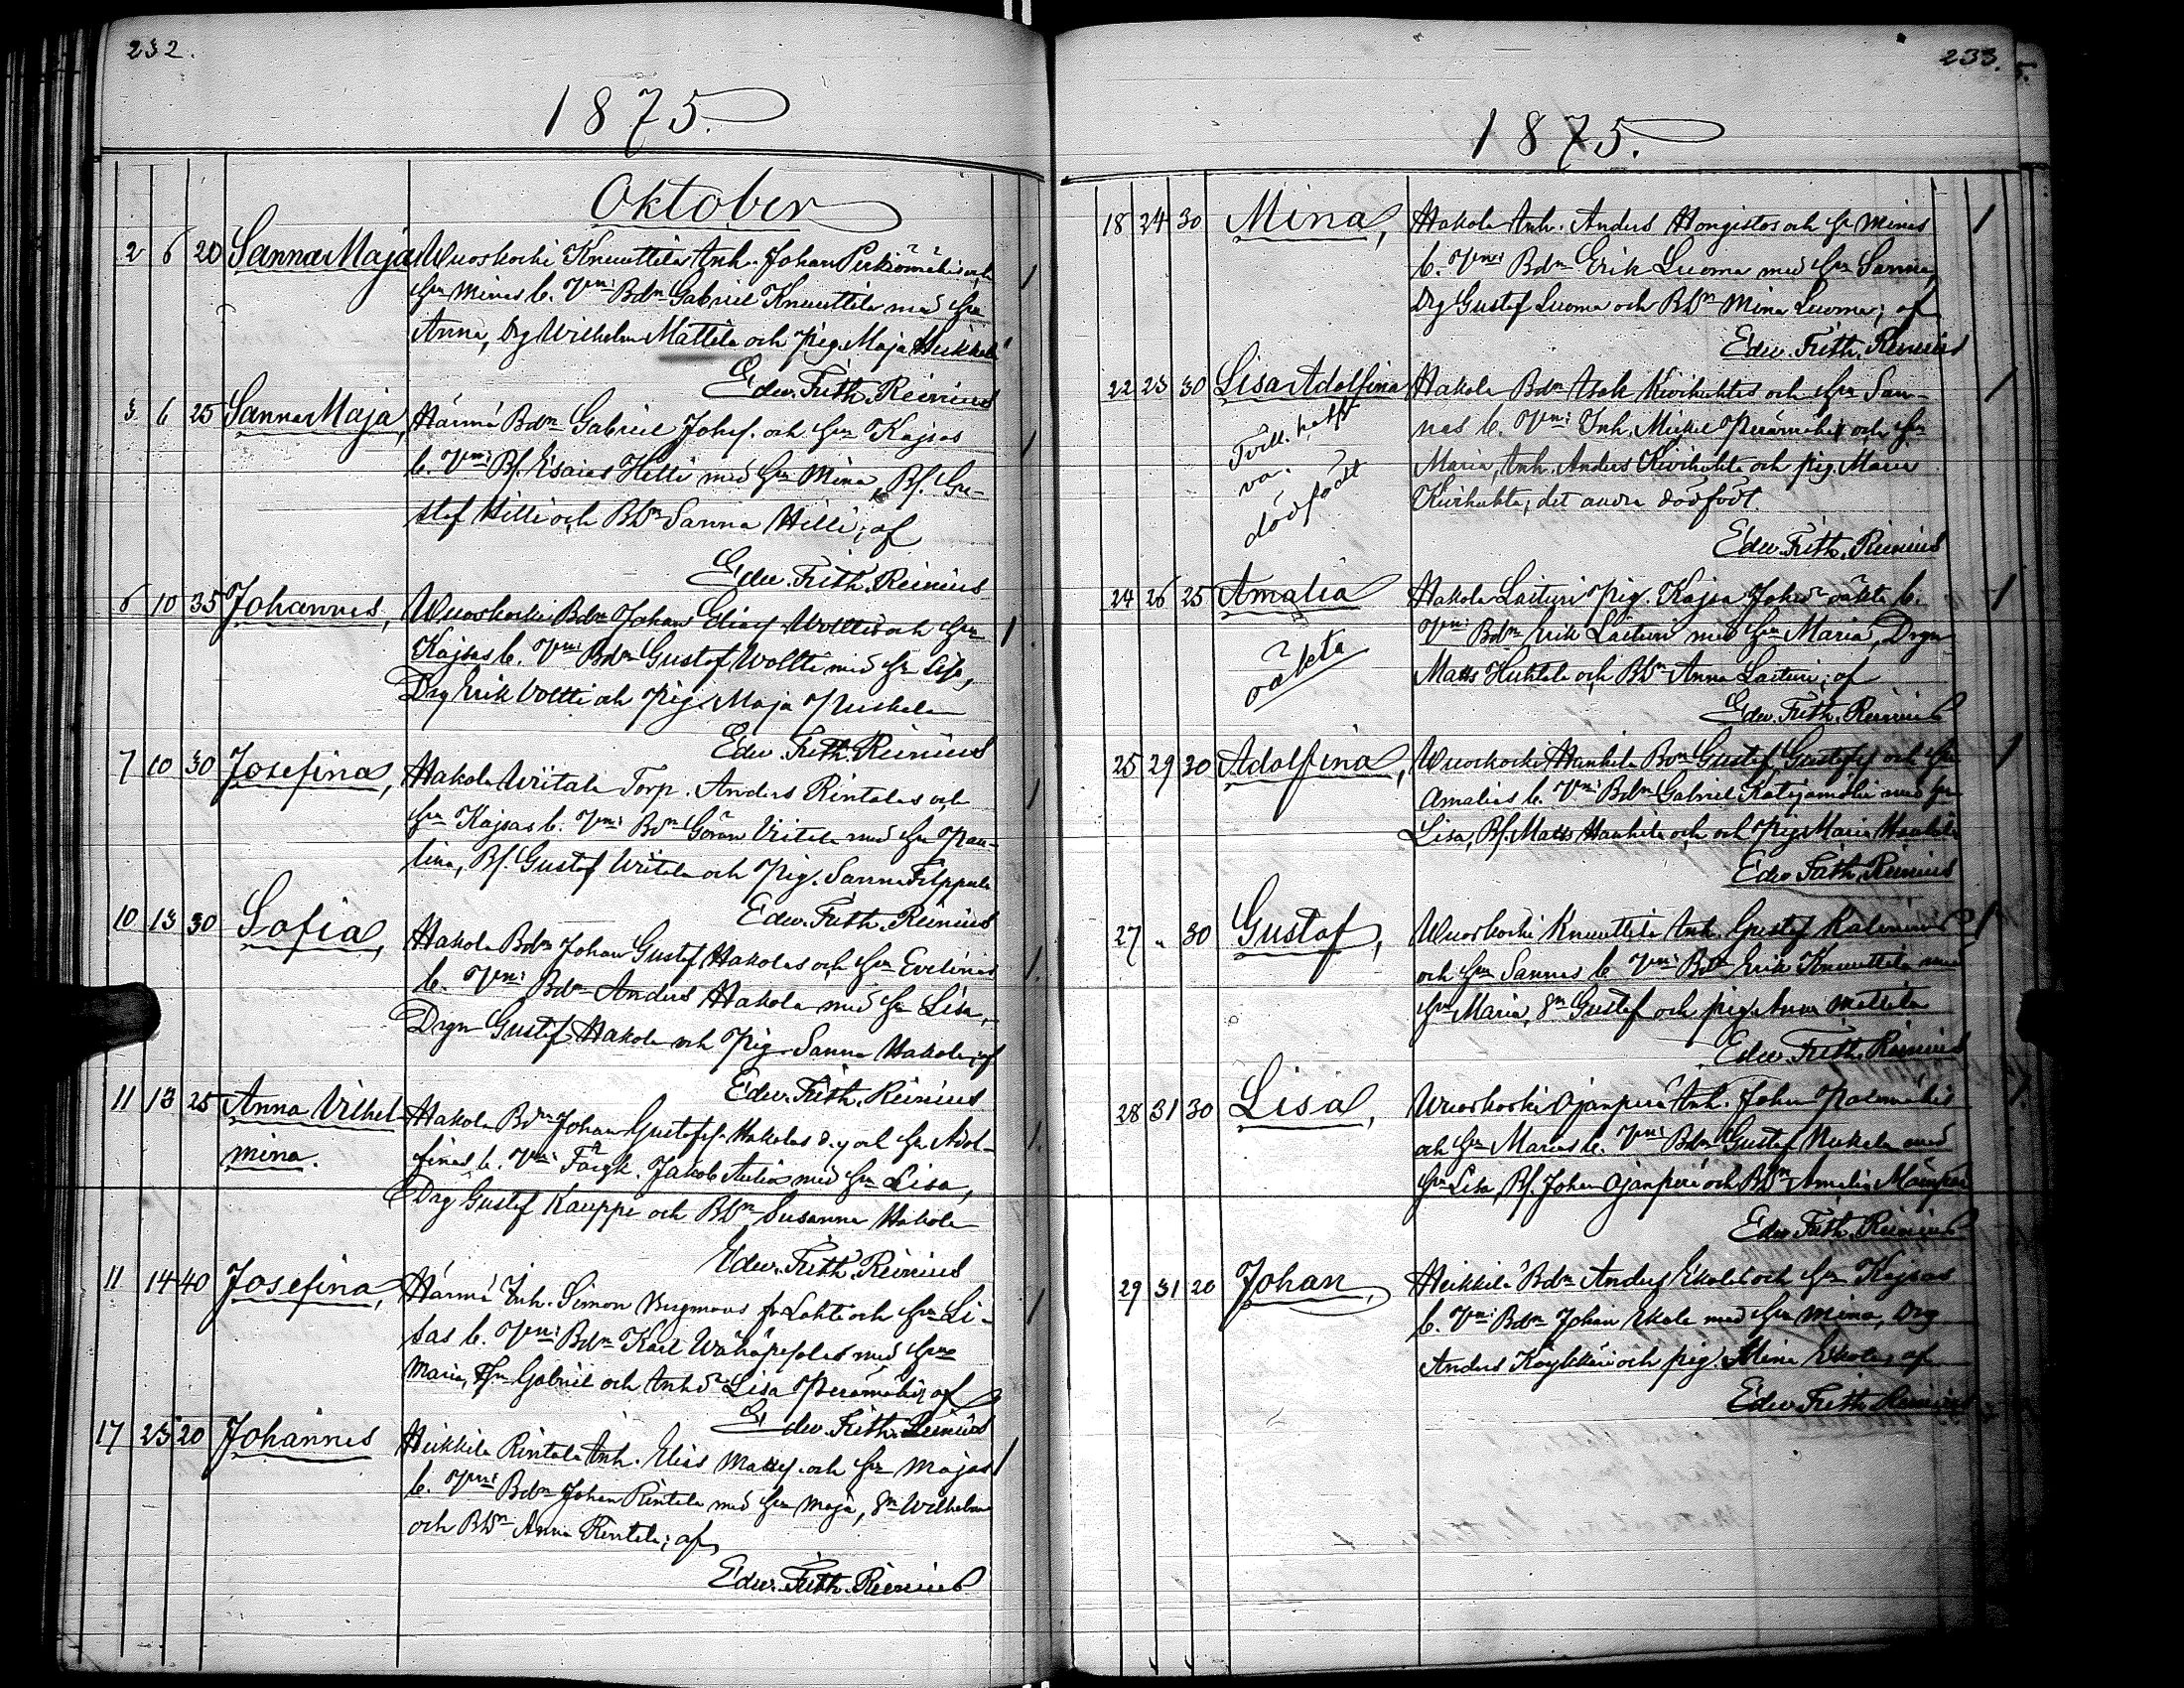 232.
1875.
Oktober
2 6 20 Sanna Maja Wuoskoski Knuuttila Inh. Johan Perkiömäkis och
hru Minas b. Vnn: Bdn Gabriel Knuuttila med hru
Anna, Drg Wilhelm Mattila och pig. Maja Heikkilä
Edw. Frith. Reinius
3 6 25 Sanna Maja, Härmä Bdn Gabriel Johsf. och hru Kajsas
b. Vnn: Bf. Esaias Hilli med hru Mina, Bf. Gu-
staf Hilli och Bdn Sanna Hilli; af
Edw. Frith. Reinius
6 10 35 Johannes, Wuoskoski Bdn Johan Eliasf Wolttis och hru
Kajsas b. Vnn: Bdn Gustaf Woltti med hru Lisa,
Drg Erik Voltti och pig. Maja
Edw. Frith. Reinius
7 10 30 Josefina, Hakola Wiitala Torp. Anders Rintalas och
hru Kajsas b. Vnn: Bdn Göran Viitala med hru Pau-
lina, Bf. Gustaf Wiitala och pig. Sanna Filppula
Edw. Frith. Reinius
10 13 30 Sofia, Hakola Bdn Johan Gustaf Hakolas och hru Evelinas
b. Vnn: Bdn Anders Hakola med hru Lisa,
Drgn Gustaf Hakola och Pig. Sanna Hakola; af
Edw. Frith. Reinius
11 13 25 Anna Vilhel- Hakola Bdn Johan Gustafsf. Hakolas d.y och hru Adol-
mina. finas b. Vnn: Färgk. Jakob med hru Lisa,
Drg Gustaf Kauppi och Bdn Susanna Hakola
Edw. Frith. Reinius
11 14 40 Josefina, Härmä Inh. Simon Bergmans fr. Lahti och hru Li-
sas b. Vnn: Bdn Karl Wähäpesolas med hru
Maria, Gabriel och Inhdr Lisa Perämäki; af
Edw. Frith. Reinius
17 23 20 Johannes Heikkilä Rintala Inh. Elias Mattsf. och hru Majas
b. Vnn: Bdn Johan Rintala med hru Maja, Sn Wilhelm
och Bdn Anna Rintala; af
Edw. Frith. Reinius
233.
1875.
18 24 30 Mina, Hakola Inh. Anders Hongistos och hru Minas
b. Vnn: Bdn Erik Luoma med hru Sanna,
Drg Gustaf Luoma och Bdn Mina Luoma; af
Edw. Frith. Reinius
22 23 30 Lisa Adolfina Hakola Bdn Isak Kivihuhtas och hru San-
nas b. Vnn: Inh. Mickel Perämäki och hru
Maria, Inh. Anders Kivihuhta och pig. Maria
Kivihuhta; det andra dödfödt.
Tvill. hvaraf
va.
dödfödt
Edw. Frith. Reinius
24 26 25 Amalia Hakola Laituri Pig. Kajsa Johsdr oäkta b.
Vnn: Bdn Erik Laituri med hru Maria, Drgn
Matts Huhtala och Bdn Anna Laituri; af
oäkta
Edw. Frith. Reinius
25 29 30 Adolfina, Wuoskoski Hanhila Bdn Gustaf Gustafsf och hru
Amalias b. Vnn: Bdn Gabriel Katajamäki med hru
Lisa, Bf. Matts Hanhila och och Pig. Maria Hanhila
Edw. Frith. Reinius
27 " 30 Gustaf, Wuoskoski Knuuttila Inh. Gustaf
och hru Sannas b. Vnn: Bdn Erik Knuuttila med
hru Maria, Sn Gustaf och pig. Anna Mattila
Edw. Frith. Reinius
28 31 30 Lisa, Wuoskoski Ojanperä Inh. Johan Palomäkis
och hru Marias b. Vnn: Bdn Gustaf med
hru Lisa, Bf. Johan Ojanperä och Bdn Amalia Mäenpää
Edw. Frith. Reinius
29 31 20 Johan, Heikkilä Bdn Andersf Ekolas och hru Kajsas
b. Vnn: Bdn Johan Ekola med hru Mina, Drg
Anders Köykkäri och pig. Mina Ekola; af
Edw. Frith. Reinius